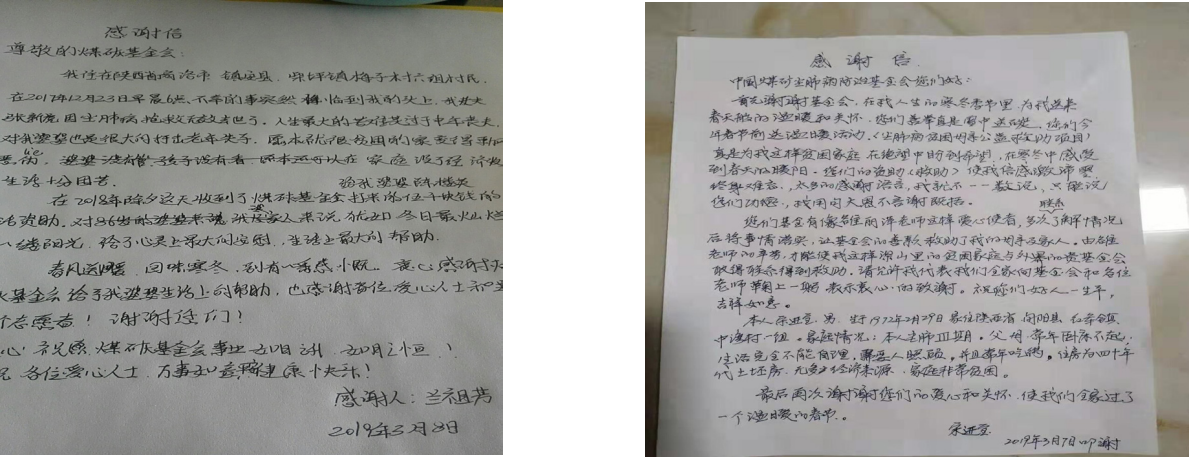 感谢信
尊敬的煤矿基金会：
我住在陕西省商洛市 镇安县，柴坪镇 村六组村民，
在2017年12月23日早晨6点，不幸的事突然 临到我的头上，我丈夫
因尘肺病 抢救无效去世了，人生最大的 过于中年丧夫，
对我婆婆也是很大的打击老年失子，原本就很贫困的家
生活十分困苦。
在2018年除夕这天收到了煤矿基金会打来的伍千块钱的
活资助，对 来说 犹如冬日
一缕阳光，给了心灵上最大的安慰，生活上最大的帮助。
春风送暖，回味寒冬，别有一番感 衷心感谢
基金会给予我婆婆生活上的帮助，也感谢各位爱心人士和
个志愿者！谢谢您们！
心祝愿煤矿基金会事业如日 如月之恒！
各位爱心人士，万事如意 健康快乐！
感谢人：兰祖芳
2019年3月8日
感谢信
中国煤矿尘肺病防治基金会您们好：
首先谢谢基金会，在我人生的寒冬季节里，为我送来
春天般的温暖和关怀，您们真挚真是雪中送碳，您们今
年春节前送温暖活动，《尘肺病贫困 公益救助项目》
真是为我这样贫困家庭 在绝望中盼到希望，在寒冬中感受
到春天的暖阳。您们的资助《救助》使我倍感激涕零
难言，太多的感谢语言，我就不一一数说，只能说
您们功德，我用句大恩不言谢概括。
您们基金有像 丽萍老师这样爱心使者，多次了解联系情况
后将事情落实，让基金会的善款救助了我的 家人。由
老师的辛苦，才能使我这样深山里的贫困家庭与外界的贵基金会
取得联系得到救助，请允许我代表我们全家向基金会和各位
老师鞠上一躬 表示衷心的致谢。祝您们好人一生平，
吉祥如意。
本人 进堂，男，生于1972年2月29日 家住陕西省 旬阳县 仁河口镇
中 村一组。家庭情况：本人尘肺III期。父母 常年卧床不起，
生活完全不能自理，需要人照顾，并且常年吃药。住房为四十年
代土坯房，无 经济来源，家庭非常贫困。
最后再次谢谢您们的爱心和关怀，使我们全家过了
一个温暖的春节。
进堂
2019年3月7日 叩谢